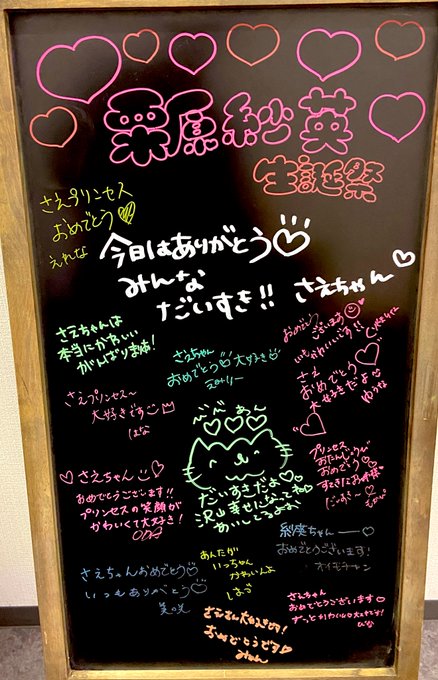 栗原紗英
生誕祭
さえプリンセス
おめでとう♡
えれな
今日はありがとう♡
みんな
だいすき!!
さえちゃん♡
さえちゃんは
本当にかわいい
がんばります!
さえちゃん
おめでとう♡大好き♡
おめでとう
ございます
いつもかわいいです!!
さえ
おめでとう
大好きだよ
ゆうな
さえプリンセス〜
大好きです
はな
べべあつん
♡♡♡
だいすきだよ
沢山幸せになってね
あいしてるよぉ
プリンセス
おたんじょうび
おめでとう♡
すてきなお姉様
だいすき〜
♡さえちゃん
おめでとうございます!!
プリンセスの笑顔が
かわいくて大好き!
紗英ちゃん――♡
おめでとうございます!
オイモチャン
さえちゃんおめでとう♡
いつもありがとう♡
美の咲
あんたが
いっちゃん
かわいいんよ
しほ
さえちゃん
おめでとうございます♡
ずっとかわいい♡大スキです!
ひな
さえさん大好きです!
おめでとうです♡
みゆん